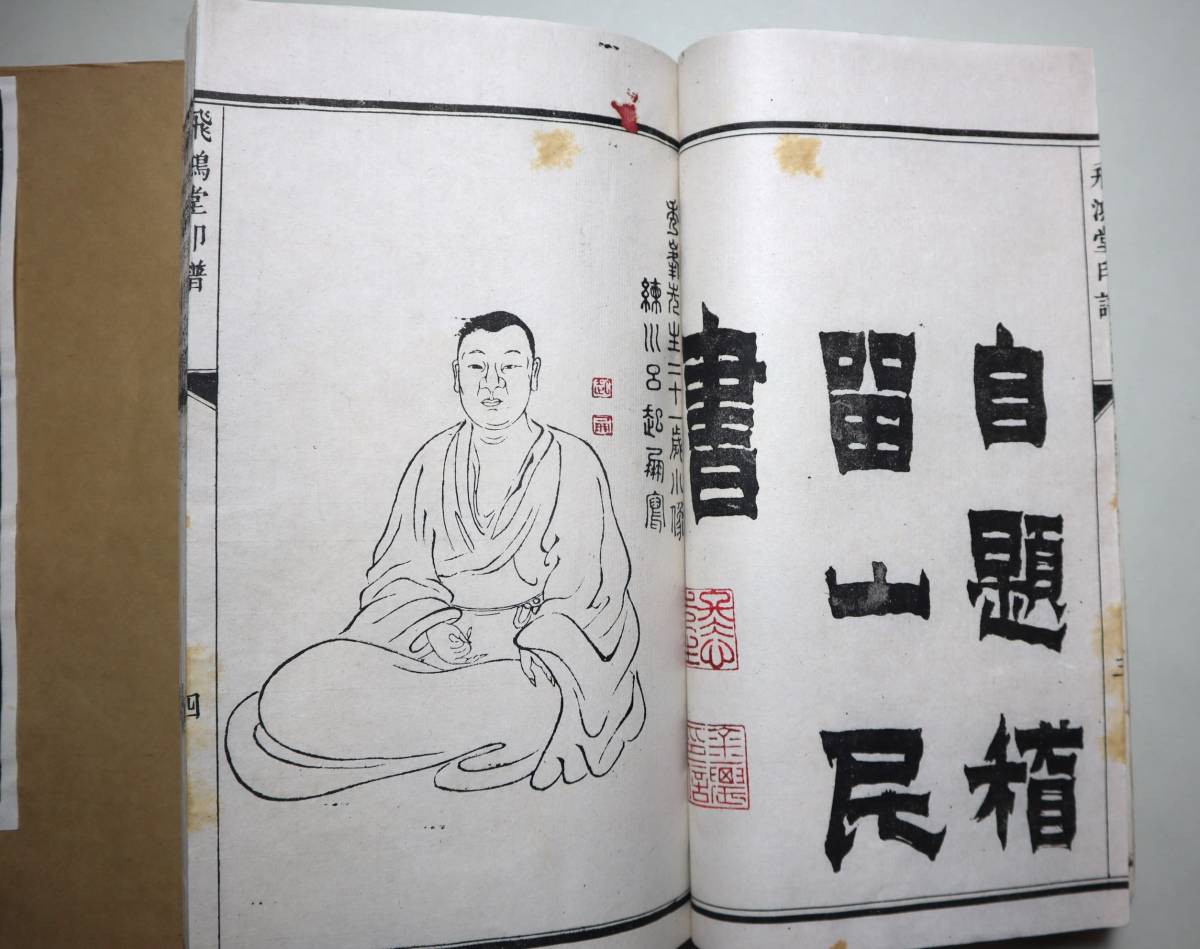 飛鴻堂印譜
自題稽
留山民
書
三
秀峯先生二十一歲小像
練川呂起 寫
飛鴻堂印譜
四